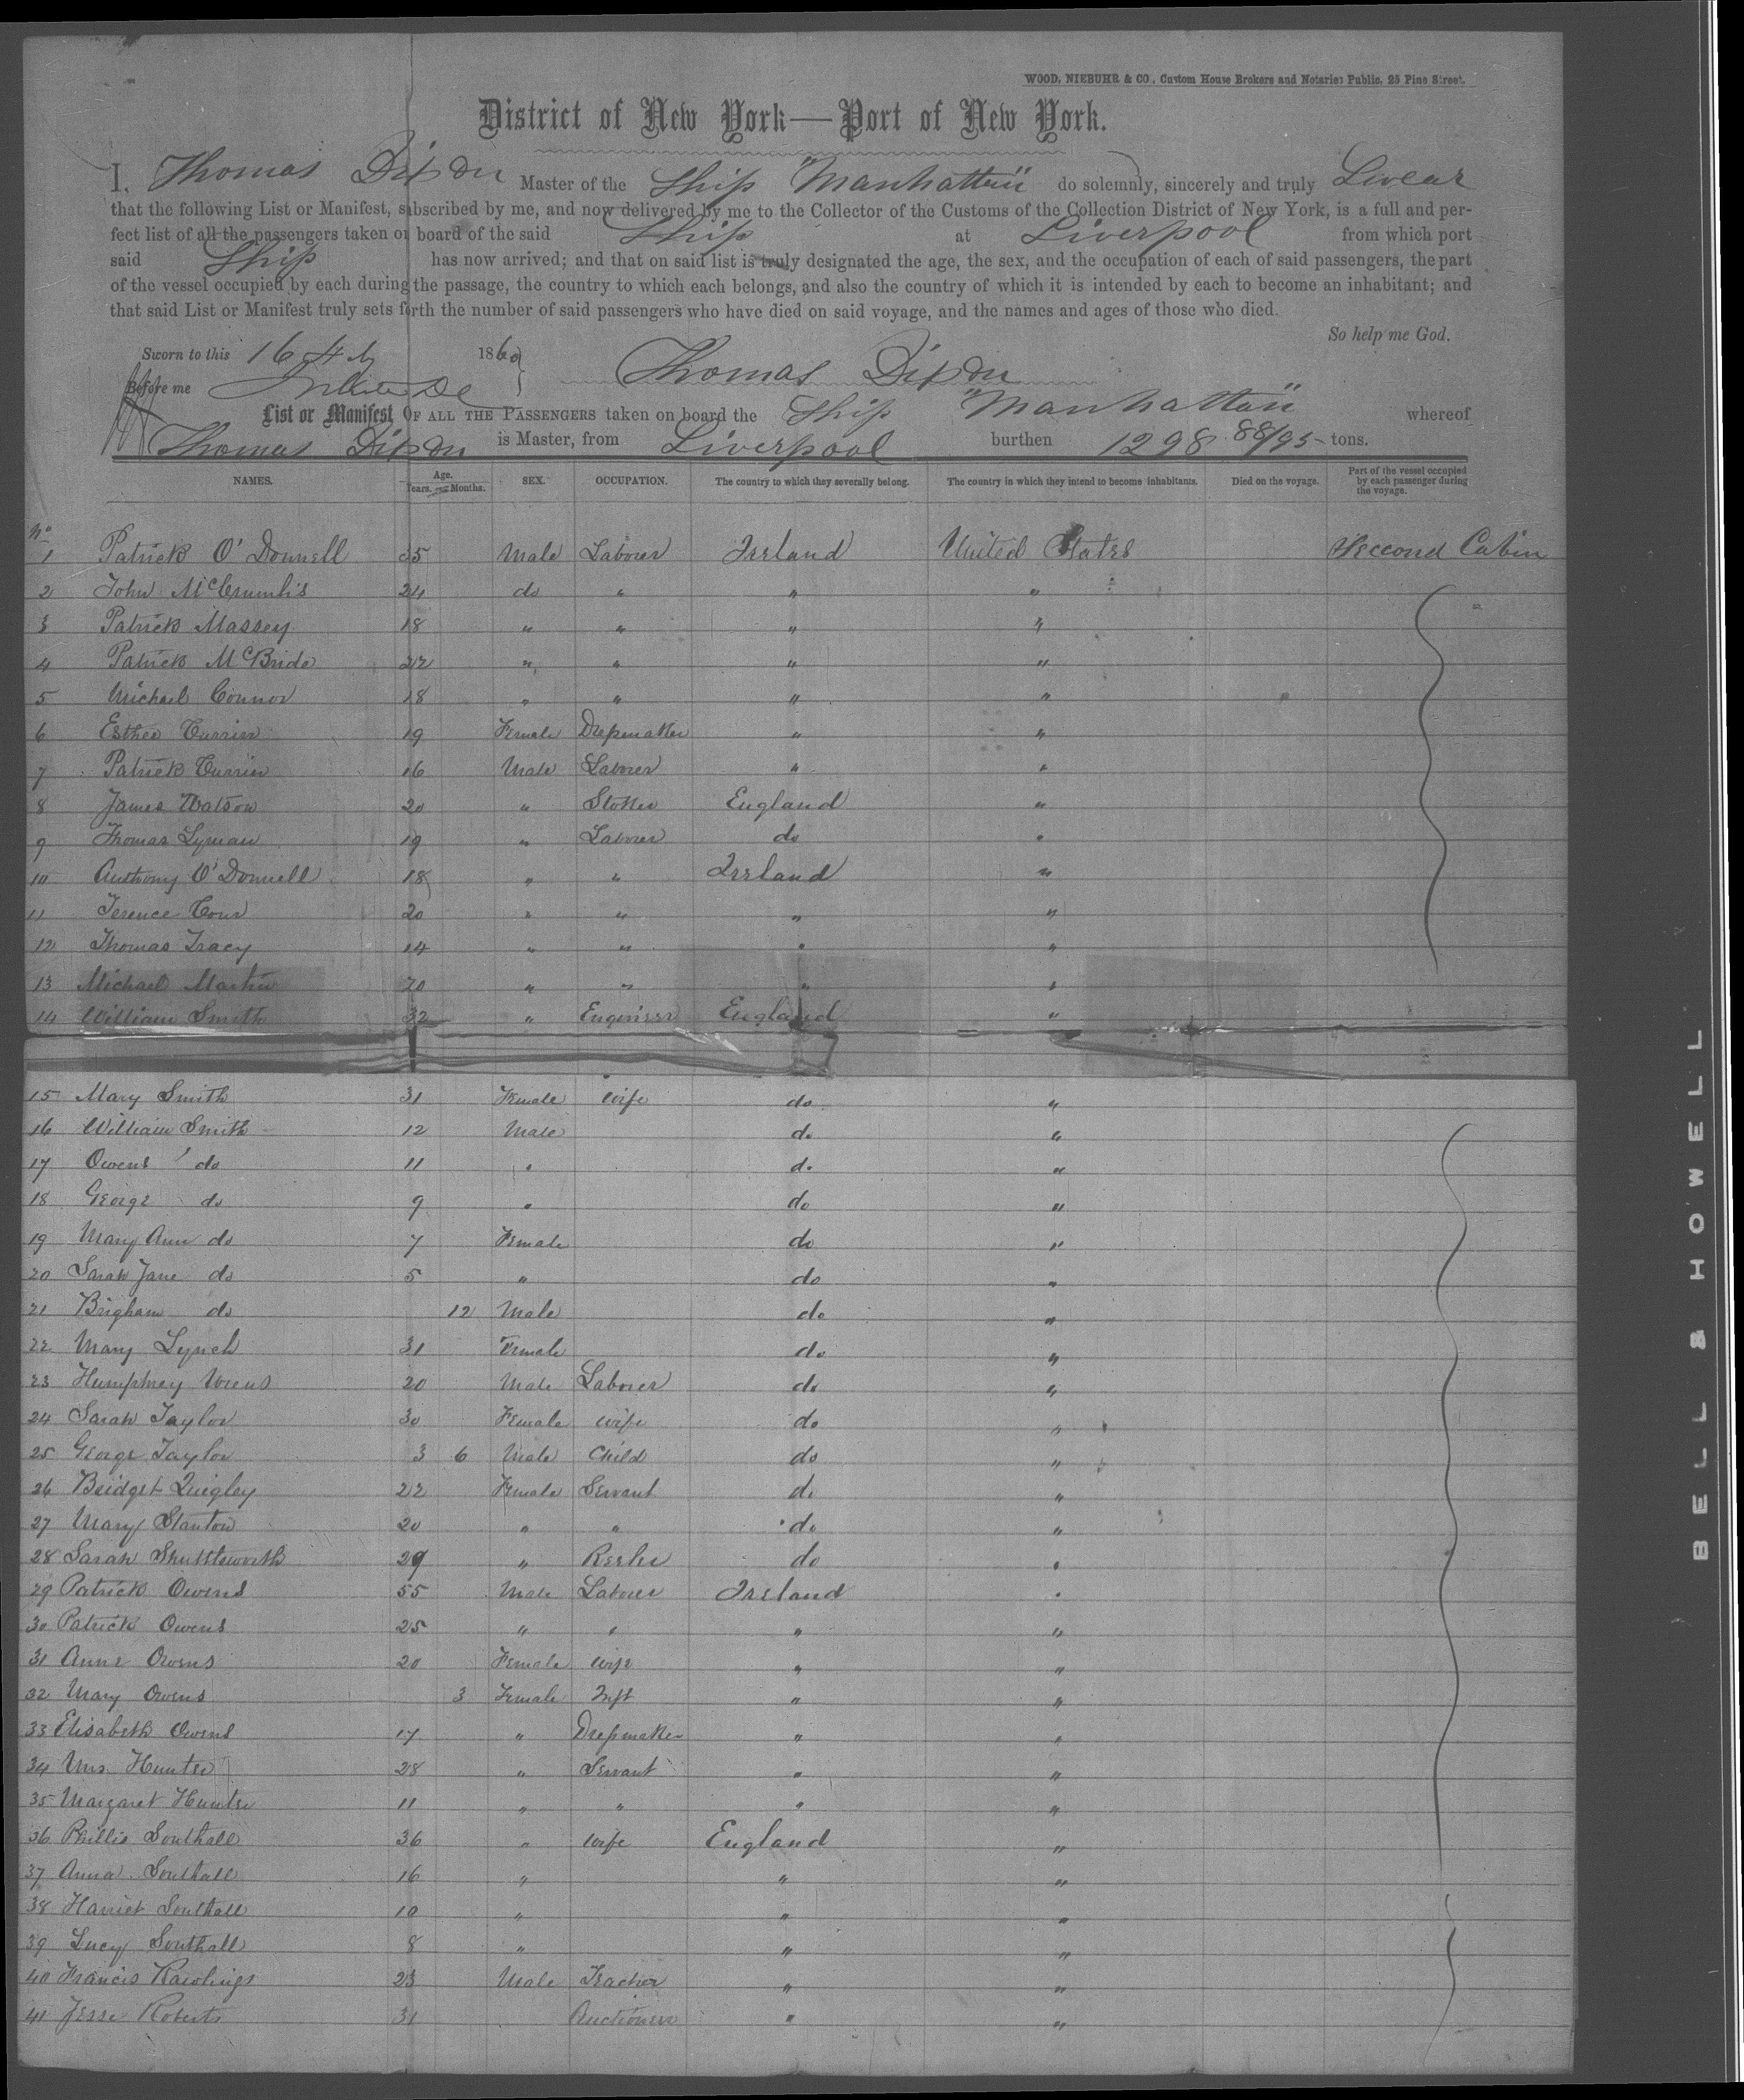 WOOD, NIEBUHR & CO., Custom House Brokers and Notaries Public, 25 Pine Street.
District of New York—Port of New York.
I, Thomas Dixon Master of the Ship "Manhattan" do solemnly, sincerely and truly Swear
that the following List or Manifest, subscribed by me, and now delivered by me to the Collector of the Customs of the Collection District of New York, is a full and per-
fect list of all the passengers taken on board of the said Ship at Liverpool from which port
said Ship has now arrived; and that on said list is truly designated the age, the sex, and the occupation of each of said passengers, the part
of the vessel occupied by each during the passage, the country to which each belongs, and also the country of which it is intended by each to become an inhabitant; and
that said List or Manifest truly sets forth the number of said passengers who have died on said voyage, and the names and ages of those who died.
So help me God.
Sworn to this 16 1860 Thomas Dixon
Before me
List or Manifest OF ALL THE PASSENGERS taken on board the Ship "Manhattan" whereof
Thomas Dixon is Master, from Liverpool burthen 1298 88/95 tons.
NAMES. Age. Years. Months. SEX. OCCUPATION. The country to which they severally belong. The country in which they intend to become inhabitants. Died on the voyage. Part of the vessel occupied by each passenger during the voyage.
No
1 Patrick O'Donnell 35 Male Laborer Ireland United States Seccond Cabin
2 John 24 do " " "
3 Patrick Massey 18 " " " "
4 Patrick McBride 22 " " " "
5 Michael Connor 18 " " " "
6 Esther Currier 19 Female Dressmaker " "
7 Patrick Currier 16 Male Laborer " "
8 James Watson 20 " Stoker England "
9 Thomas Lyman 19 " Laborer do "
10 Anthony O'Donnell 18 " " Ireland "
11 Terence 20 " " " "
12 Thomas Tracy 14 " " " "
13 Michael Martin 20 " " " "
14 William Smith 32 " Engineer England "
15 Mary Smith 31 Female wife do "
16 William Smith 12 Male do "
17 Owens do 11 " do "
18 George do 9 " do "
19 Mary Ann do 7 Female do "
20 Sarah Jane do 5 " do "
21 Brigham do 12 Male do "
22 Mary Lynch 31 Female do "
23 Humphrey 20 Male Laborer do "
24 Sarah Taylor 30 Female wife do "
25 George Taylor 3 6 Male Child do "
26 Bridget Quigley 22 Female Servant do "
27 Mary Stanton 20 " " do "
28 Sarah Shuttleworth 29 " do "
29 Patrick Owens 55 Male Laborer Ireland "
30 Patrick Owens 25 " " " "
31 Anne Owens 20 Female wife " "
32 Mary Owens 3 Female Inft " "
33 Elisabeth Owens 17 " Dressmaker " "
34 Mrs. Hunter 28 " Servant " "
35 Margaret Hunter 11 " " " "
36 Phillis Southall 36 " wife England "
37 Anna Southall 16 " " "
38 Harriet Southall 10 " " "
39 Lucy Southall 8 " " "
40 Francis Rawlings 23 Male Teacher " "
41 Jesse Roberts 31 Auctioneer " "
BELL & HOWELL